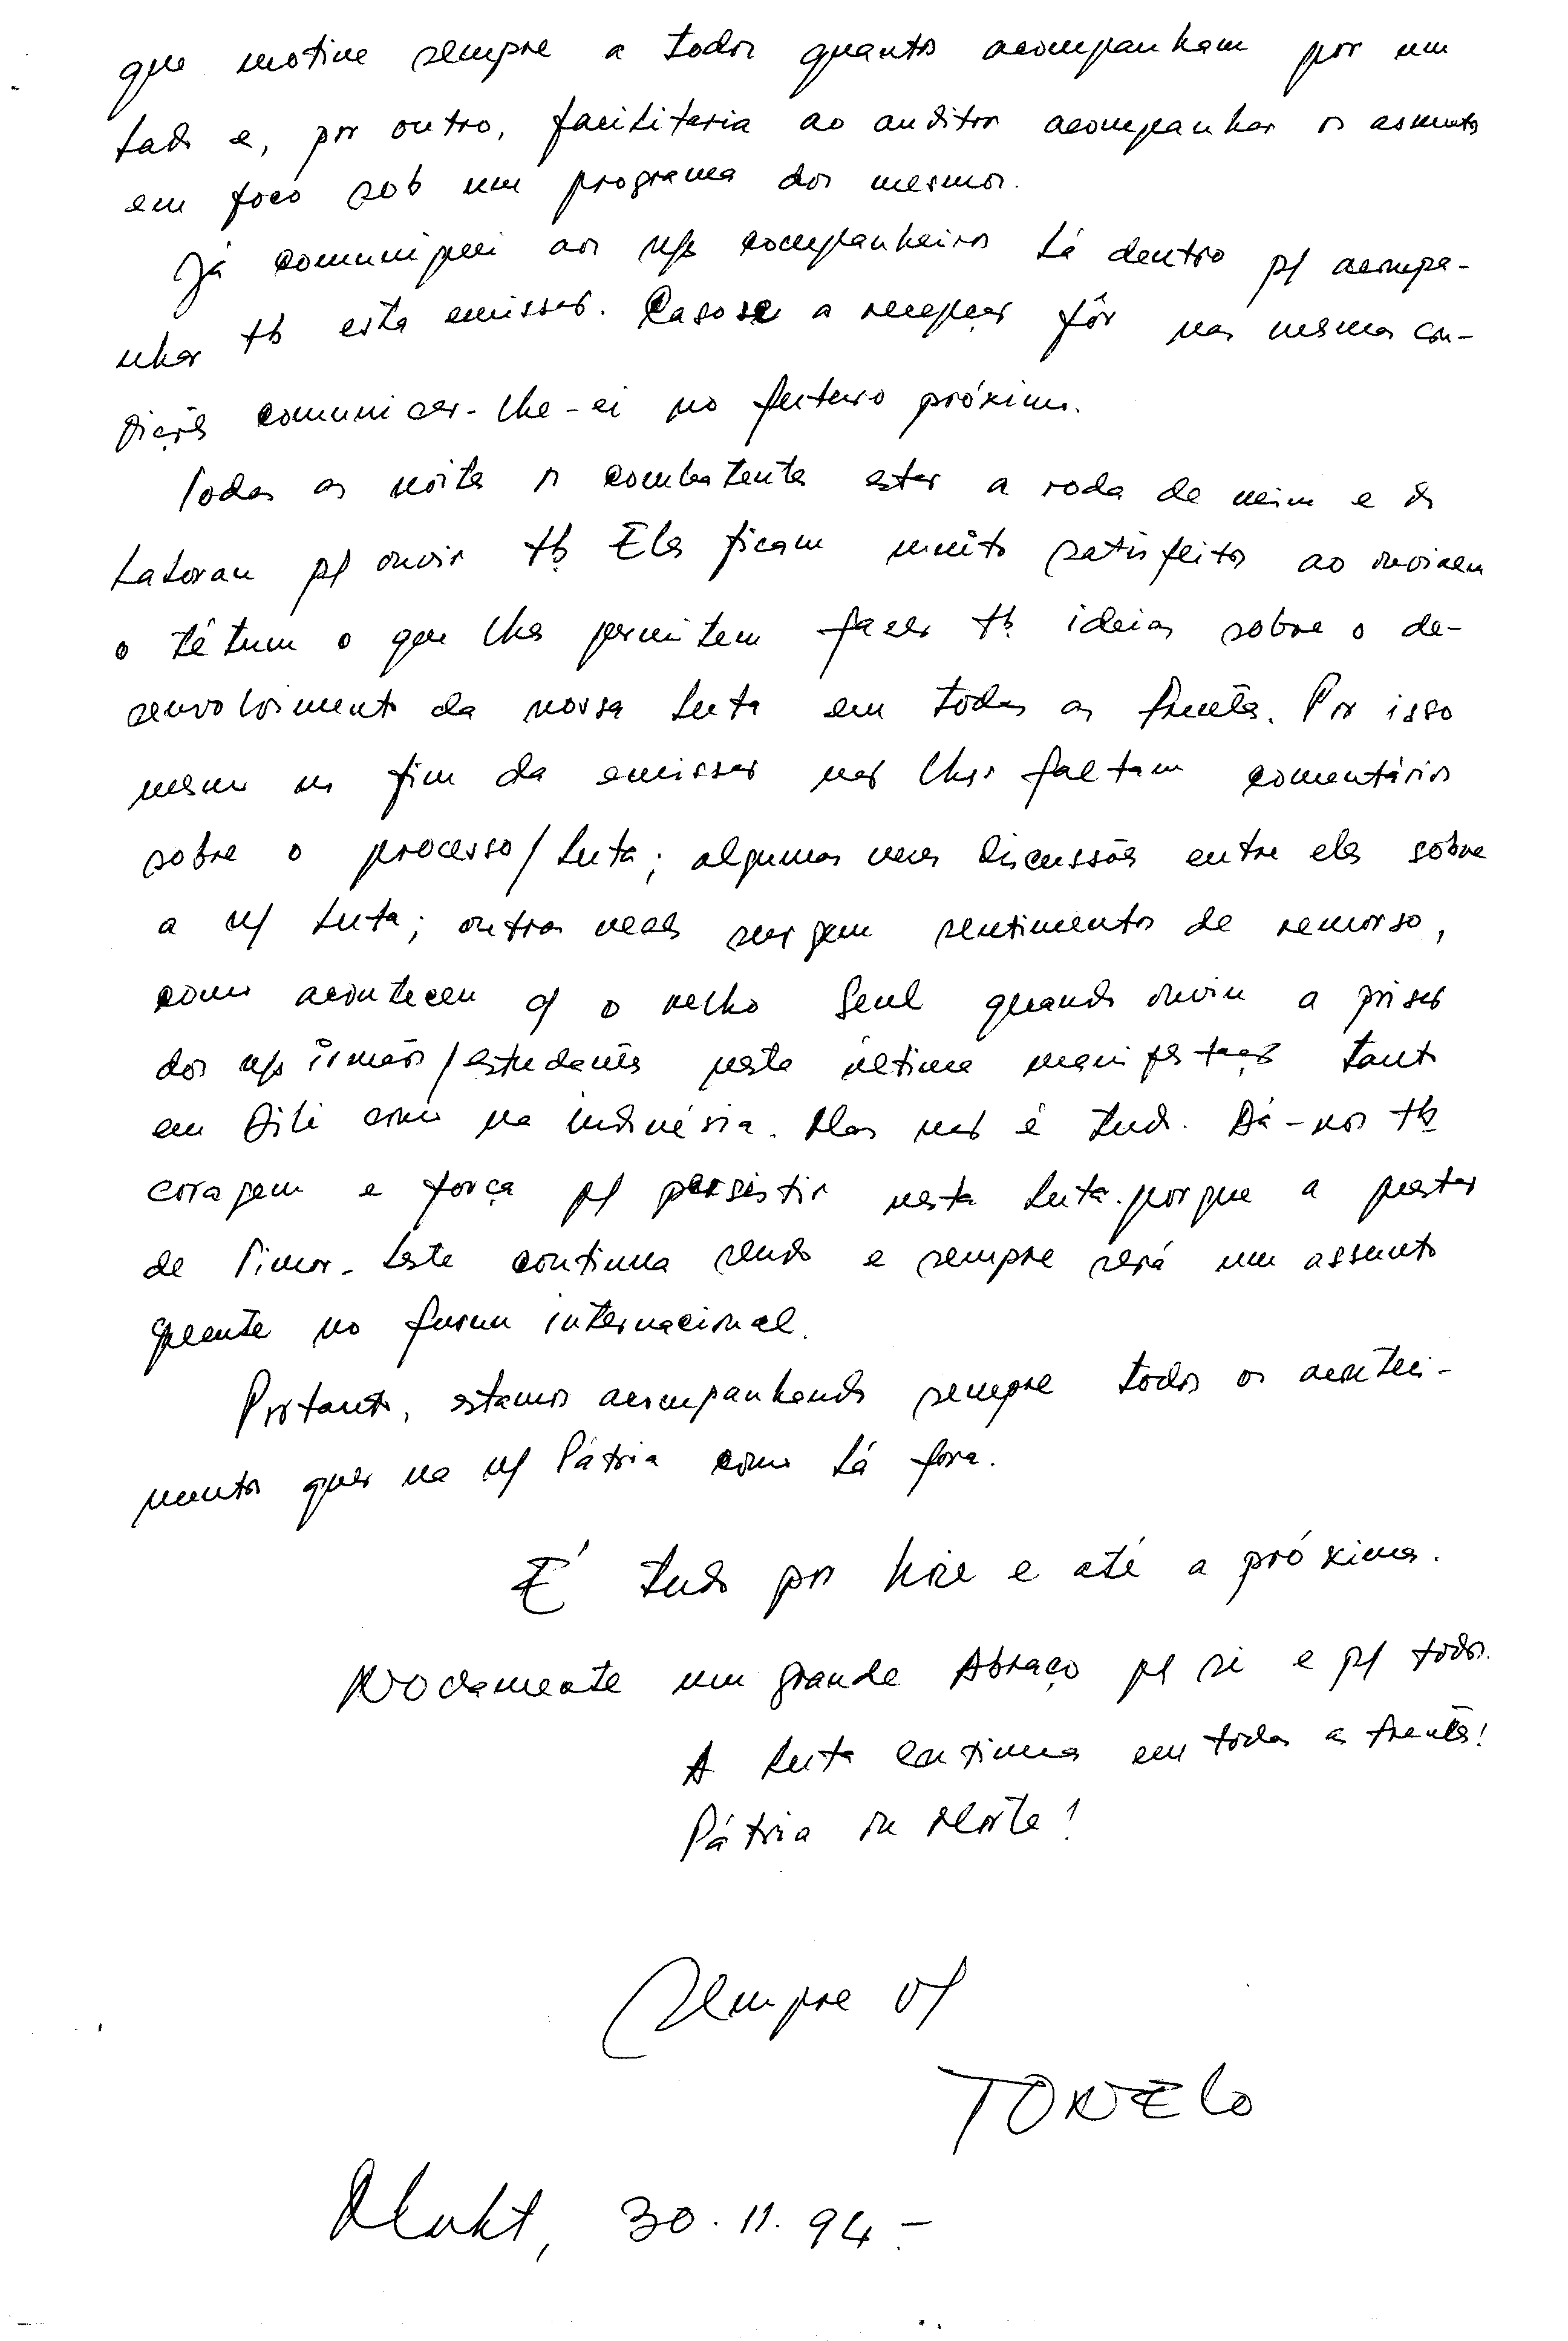 que motive sempre a todos quantos acompanham por um
lado e, por outro, facilitaria ao auditor acompanhar os assuntos
em foco sob um programa dos mesmos.
Já comuniquei aos n/s companheiros lá dentro p/ acompa-
nhar tb esta emissão. Caso se a recepção fôr nas mesmas con-
dições comunicar-lhe-ei no futuro próximo.
Todas as noites os combatentes estão a roda de mim e do
Latoran p/ ouvir tb. Eles ficam muito satisfeitos ao ouvirem
o tétum o que lhes permitem fazer tb. ideias sobre o de-
senvolvimento da nossa luta em todas as frentes. Por isso
mesmo no fim da emissão não lhes faltam comentários
sobre o processo/luta; algumas vezes discussões entre eles sobre
a n/ luta; outras vezes surgem sentimentos de remorso,
como aconteceu c/ o velho quando ouviu a prisão
dos n/s irmãos/estudantes nesta última manifestação tanto
em Dili como na indonésia. Mas não é tudo. Dá-nos tb
coragem e força p/ persistir nesta luta porque a questão
de Timor-Leste continua sendo e sempre será um assunto
quente no forum internacional.
Portanto, estamos acompanhando sempre todos os aconteci-
mentos quer na n/ Pátria como lá fora.
É tudo por hoje e até a próxima.
Novamente um grande Abraço p/ si e p/ todos.
A luta continua em todas as frentes!
Pátria ou Morte!
Sempre v/
TONELO
30.11.94.-